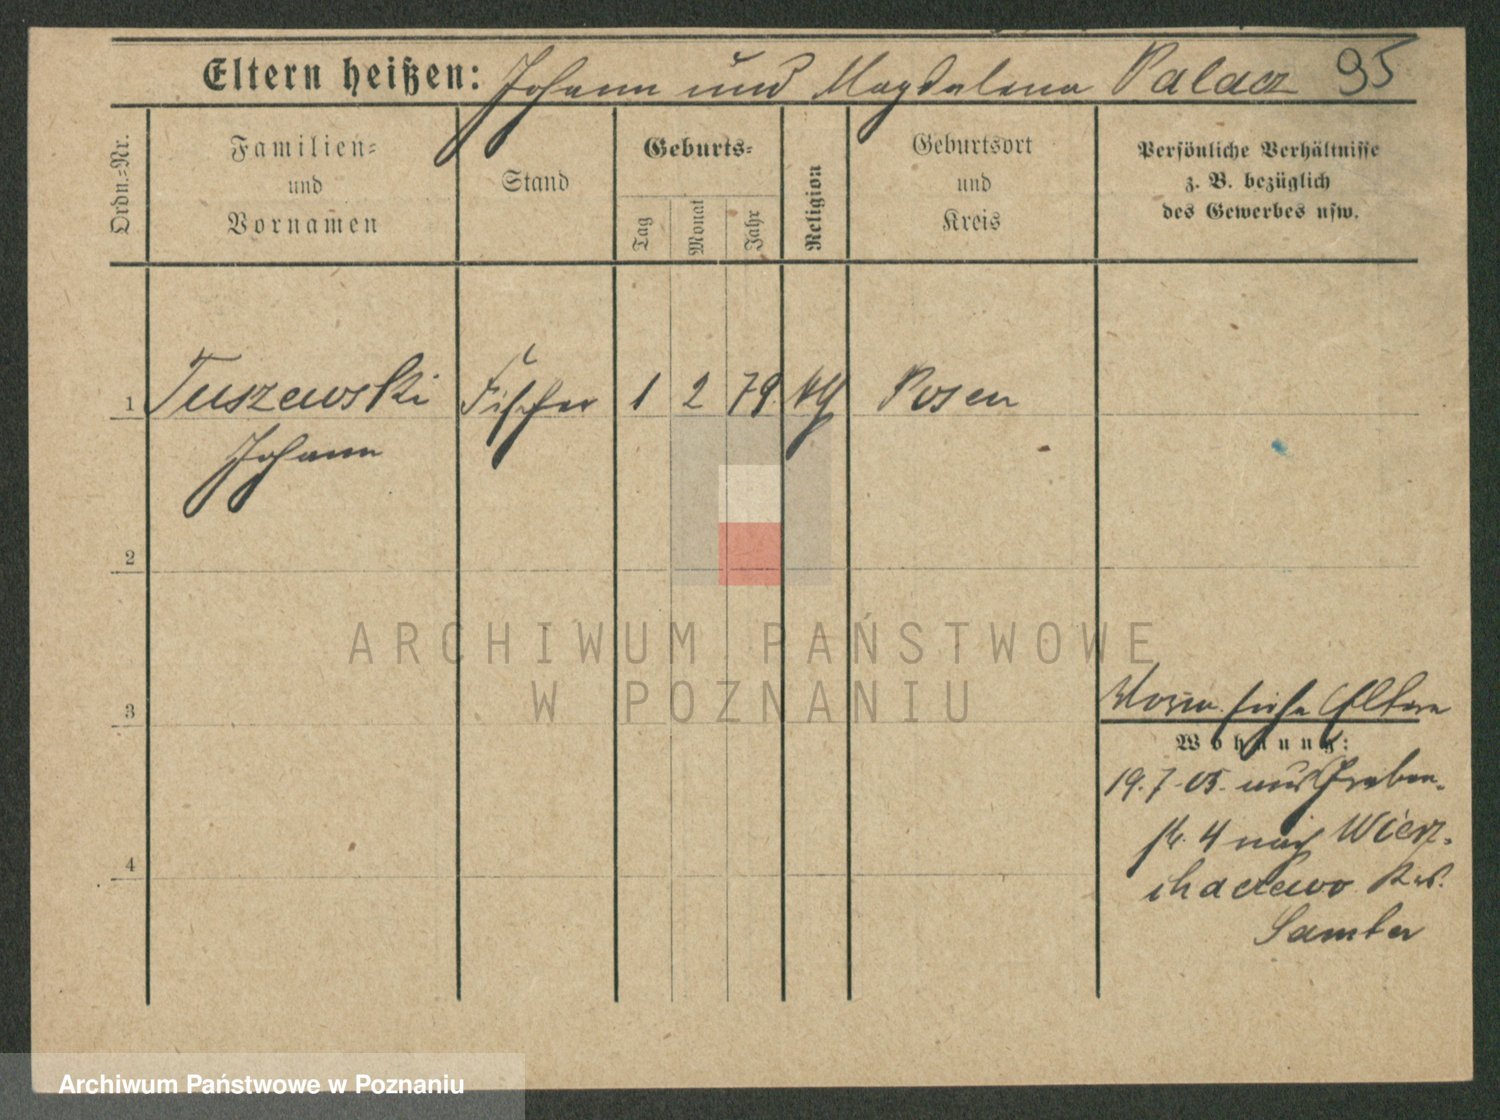 Eltern heißen: Johann und Magdalena Palacz 95
Ordn.=Nr.
Familien=
und
Vornamen
Stand
Geburts=
Tag
Monat
Jahr
Religion
Geburtsort
und
Kreis
Persönliche Verhältnisse
z. B. bezüglich
des Gewerbes usw.
1 Tuszewski Fischer 1 2 79. kth Posen
Johann
2
3
4
siehe Eltern
Wohnung:
19.7.05. aus Graben-
str. 4 nach Wierz-
chaczewo Krs.
Samter
ARCHIWUM PAŃSTWOWE
W POZNANIU
Archiwum Państwowe w Poznaniu